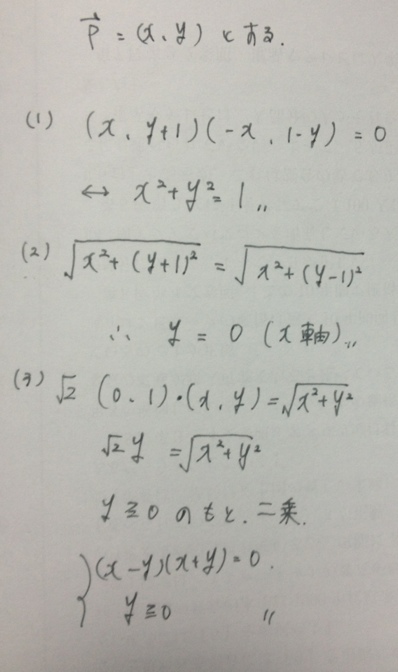 P⃗ = (x, y) とする.
(1) (x, y+1)(-x, 1-y) = 0
↔ x²+y²=1〃
(2) √(x²+(y+1)²) = √(x²+(y-1)²)
∴ y = 0 (x軸)〃
(3) √2 (0,1)・(x,y)=√(x²+y²)
√2y =√(x²+y²)
y≧0 のもと、二乗.
{(x-y)(x+y)=0.
y≧0 〃